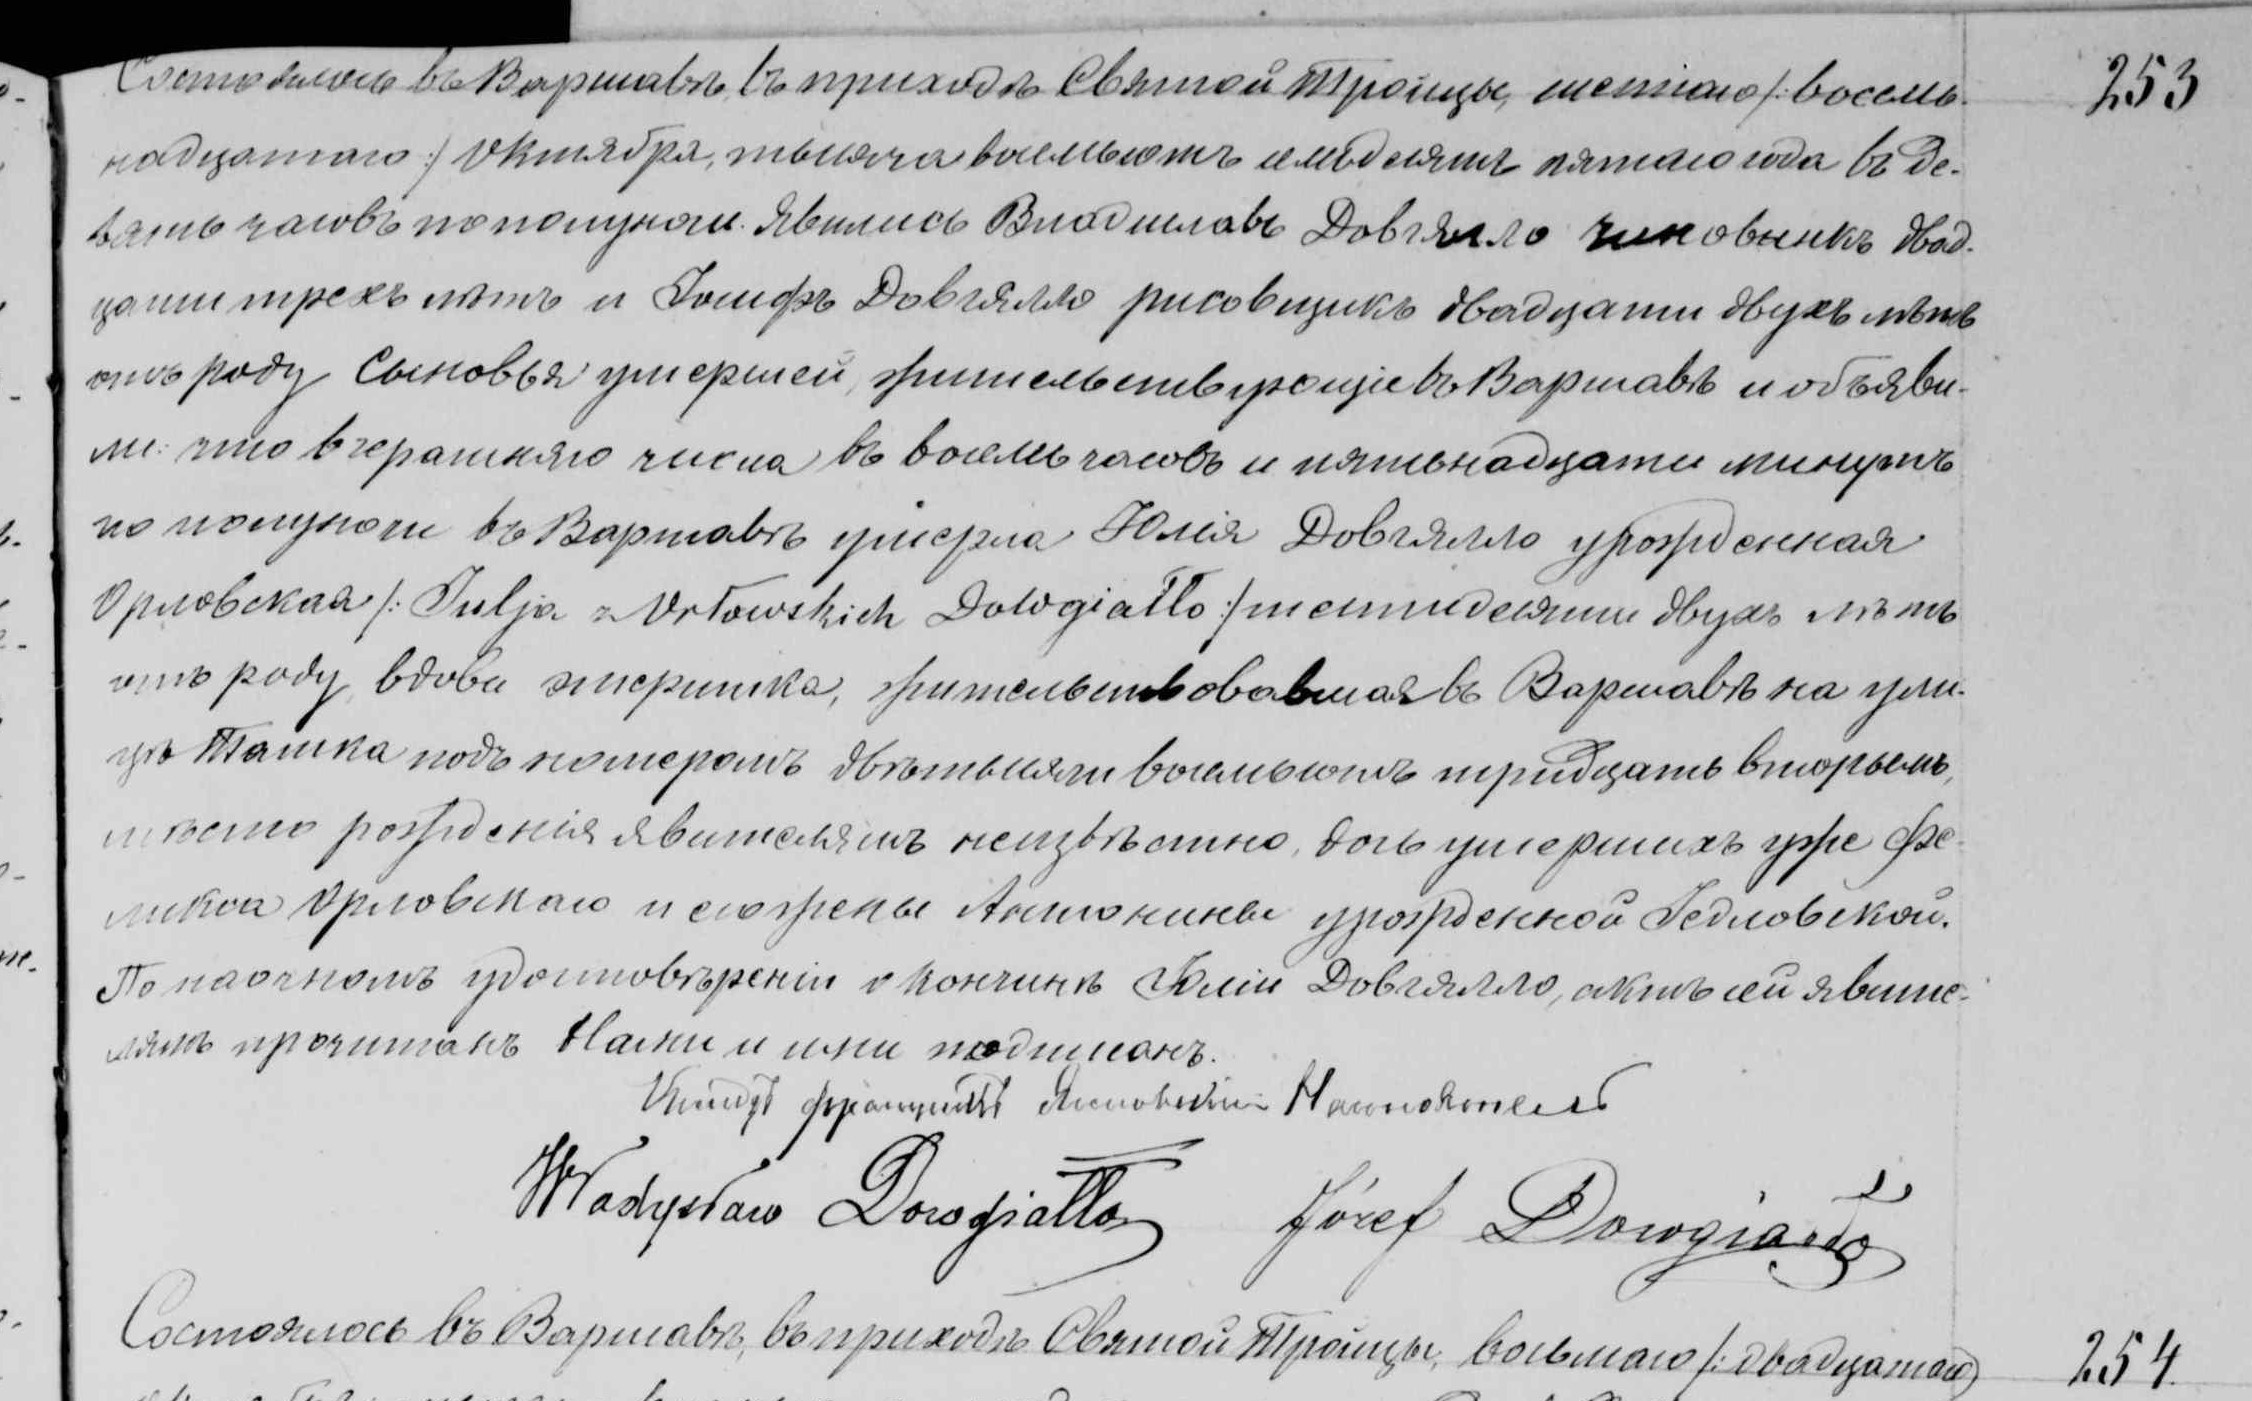 Состоялось въ Варшавѣ, въ приходѣ Святой Троицы, шестаго /: восем- 253
надцатаго :/ Октября, тысяча восемьсотъ семьдесятъ пятаго года въ де-
вять часовъ по полуночи. Явились Владиславъ Довгялло чиновникъ двад-
цати трехъ лѣтъ и Іосифъ Довгялло рисовщикъ двадцати двухъ лѣтъ
отъ роду сыновья умершей, жительствующіе въ Варшавѣ и объяви-
ли: что вчерашняго числа въ восемь часовъ и пятьнадцати минутъ
по полуночи въ Варшавѣ умерла Юлія Довгялло урожденная
Орловская /: Julja z Orłowskich Dowgiałło :/ шестидесяти двухъ лѣтъ
отъ роду, вдова эмеритка, жительствовавшая въ Варшавѣ на ули-
цѣ Тамка подъ номеромъ двѣтысячи восемьсотъ тридцать вторымъ,
мѣсто рожденія явителямъ неизвѣстно, дочь умершихъ уже Фе-
ликса Орловскаго и его жены Антонины урожденной Гедловской.
По наочномъ удостовѣреніи о кончинѣ Юліи Довгялло, актъ сей явите-
лямъ прочитанъ Нами и ими подписанъ.
Ксендзъ Францискъ
Władysław Dowgiałło Józef Dowgiałło
Состоялось въ Варшавѣ, въ приходѣ Святой Троицы, восьмаго /: двадцатаго 254